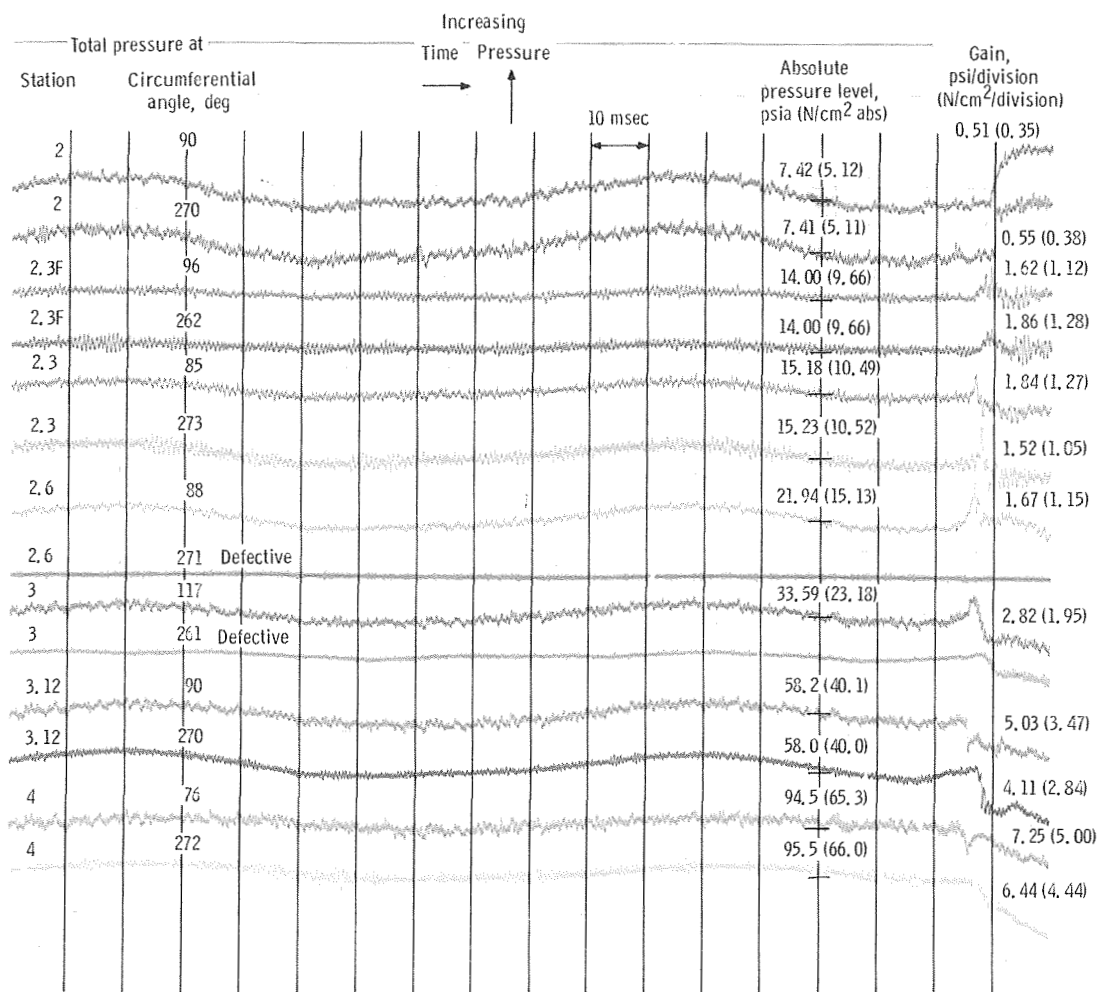 Increasing
Total pressure at Time Pressure
Station Circumferential angle, deg
Absolute pressure level, psia (N/cm² abs)
Gain, psi/division (N/cm²/division)
10 msec
2 90 7.42 (5.12) 0.51 (0.35)
2 270 7.41 (5.11) 0.55 (0.38)
2.3F 96 14.00 (9.66) 1.62 (1.12)
2.3F 262 14.00 (9.66) 1.86 (1.28)
2.3 85 15.18 (10.49) 1.84 (1.27)
2.3 273 15.23 (10.52) 1.52 (1.05)
2.6 88 21.94 (15.13) 1.67 (1.15)
2.6 271 Defective
3 117 33.59 (23.18) 2.82 (1.95)
3 261 Defective
3.12 90 58.2 (40.1) 5.03 (3.47)
3.12 270 58.0 (40.0) 4.11 (2.84)
4 76 94.5 (65.3) 7.25 (5.00)
4 272 95.5 (66.0) 6.44 (4.44)